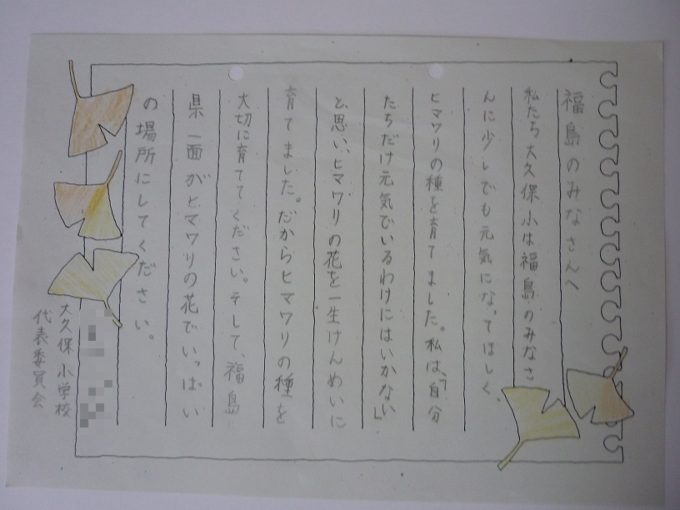 福島のみなさんへ
私たち大久保小は福島のみなさ
んに少しでも元気になってほしく、
ヒマワリの種を育てました。私は、「自分
たちだけ元気でいるわけにはいかない」
と思い、ヒマワリの花を一生けんめいに
育てました。だからヒマワリの種を
大切に育ててください。そして、福島
県一面がヒマワリの花でいっぱい
の場所にしてください。
大久保小学校
代表委員会